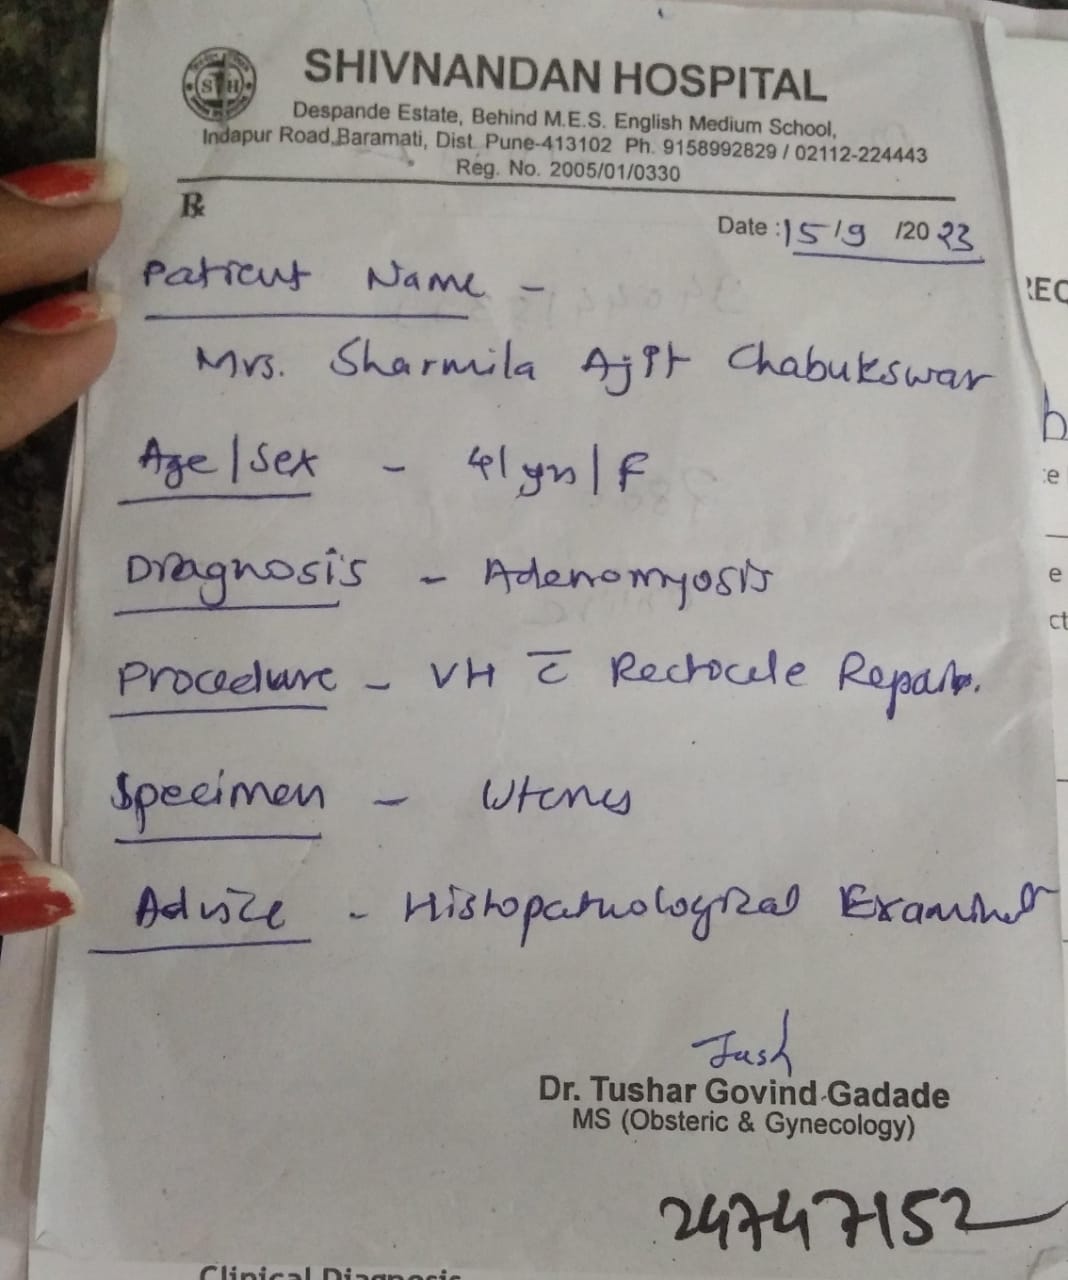 SHIVNANDAN HOSPITAL
Despande Estate, Behind M.E.S. English Medium School,
Indapur Road,Baramati, Dist. Pune-413102 Ph. 9158992829 / 02112-224443
Reg. No. 2005/01/0330
Rx
Date : 15/9 /2023
Patient Name -
Mrs. Sharmila Ajit Chabukswar
Age/Sex - 41yrs/F
Diagnosis - Adenomyosis
Procedure - VH c̄ Rectocele Repair.
Specimen - Uterus
Advice - Histopathological Examinat
Tush
Dr. Tushar Govind Gadade
MS (Obsteric & Gynecology)
24747152
Clinical Diagnosis